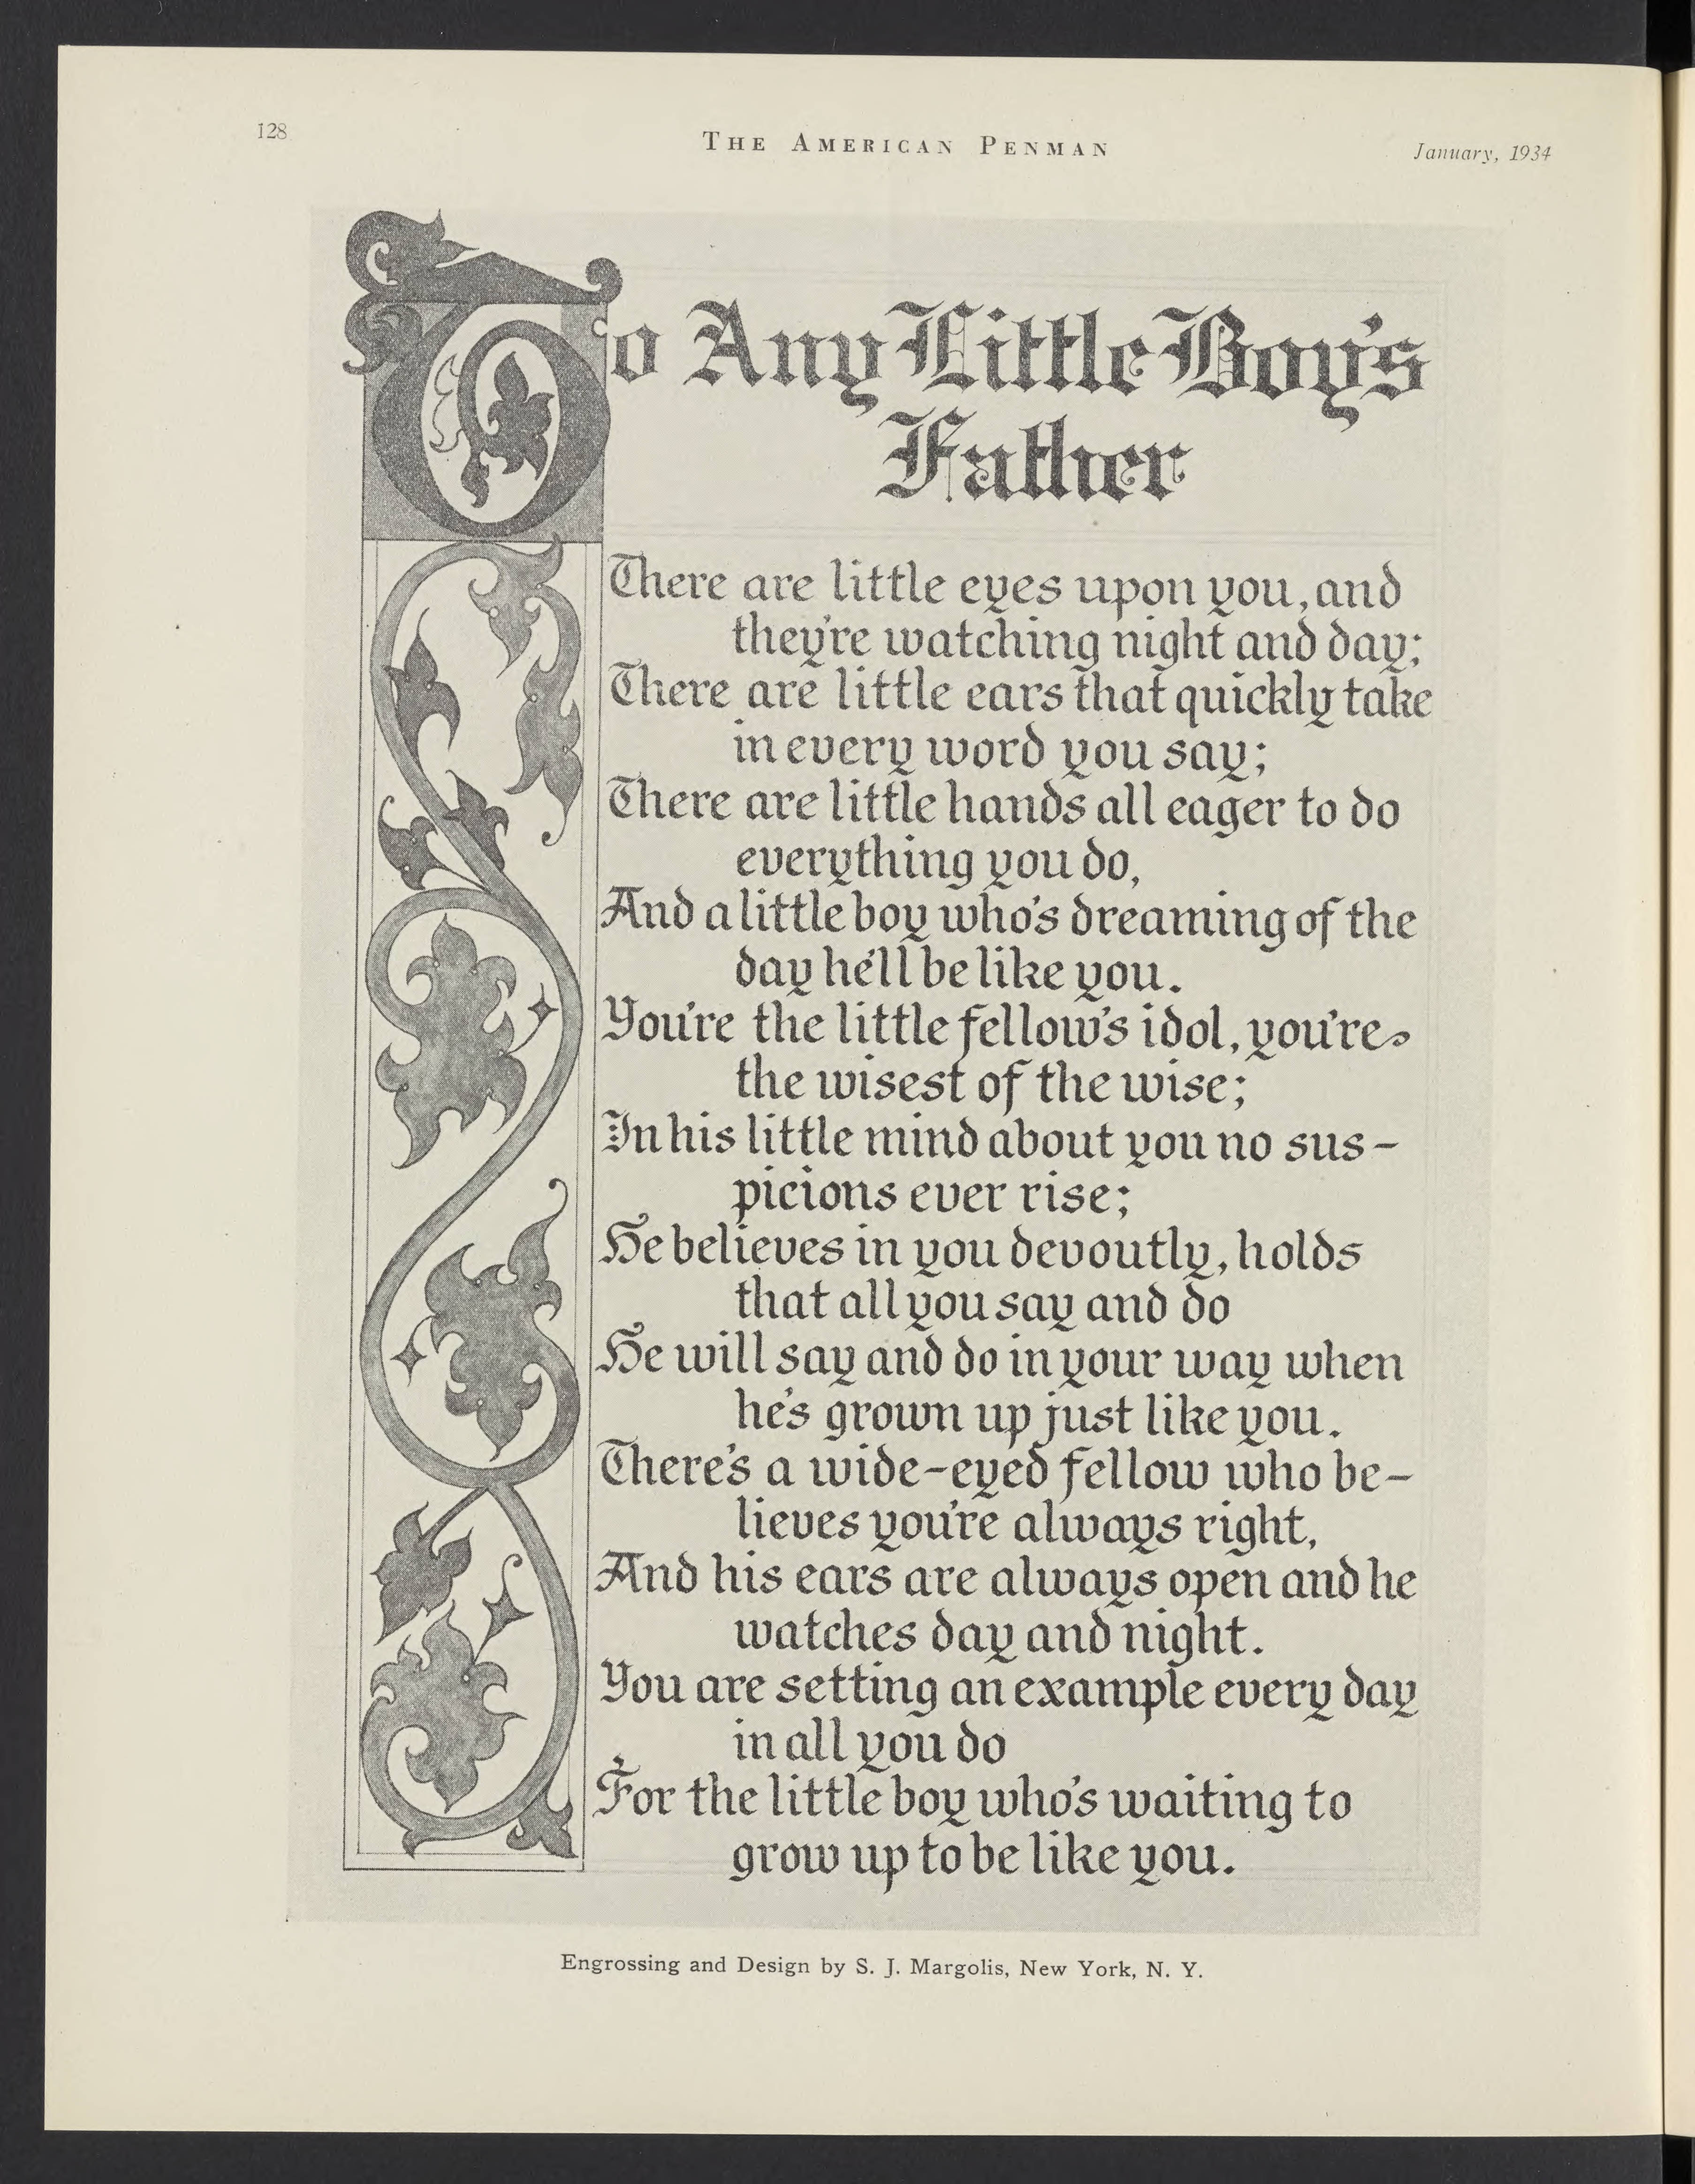 128
THE AMERICAN PENMAN
January, 1934
To Any Little Boy's
Father
There are little eyes upon you, and
they're watching night and day;
There are little ears that quickly take
in every word you say;
There are little hands all eager to do
everything you do,
And a little boy who's dreaming of the
day he'll be like you.
You're the little fellow's idol, you're
the wisest of the wise;
In his little mind about you no sus-
picions ever rise;
He believes in you devoutly, holds
that all you say and do
He will say and do in your way when
he's grown up just like you.
There's a wide-eyed fellow who be-
lieves you're always right,
And his ears are always open and he
watches day and night.
You are setting an example every day
in all you do
For the little boy who's waiting to
grow up to be like you.
Engrossing and Design by S. J. Margolis, New York, N. Y.